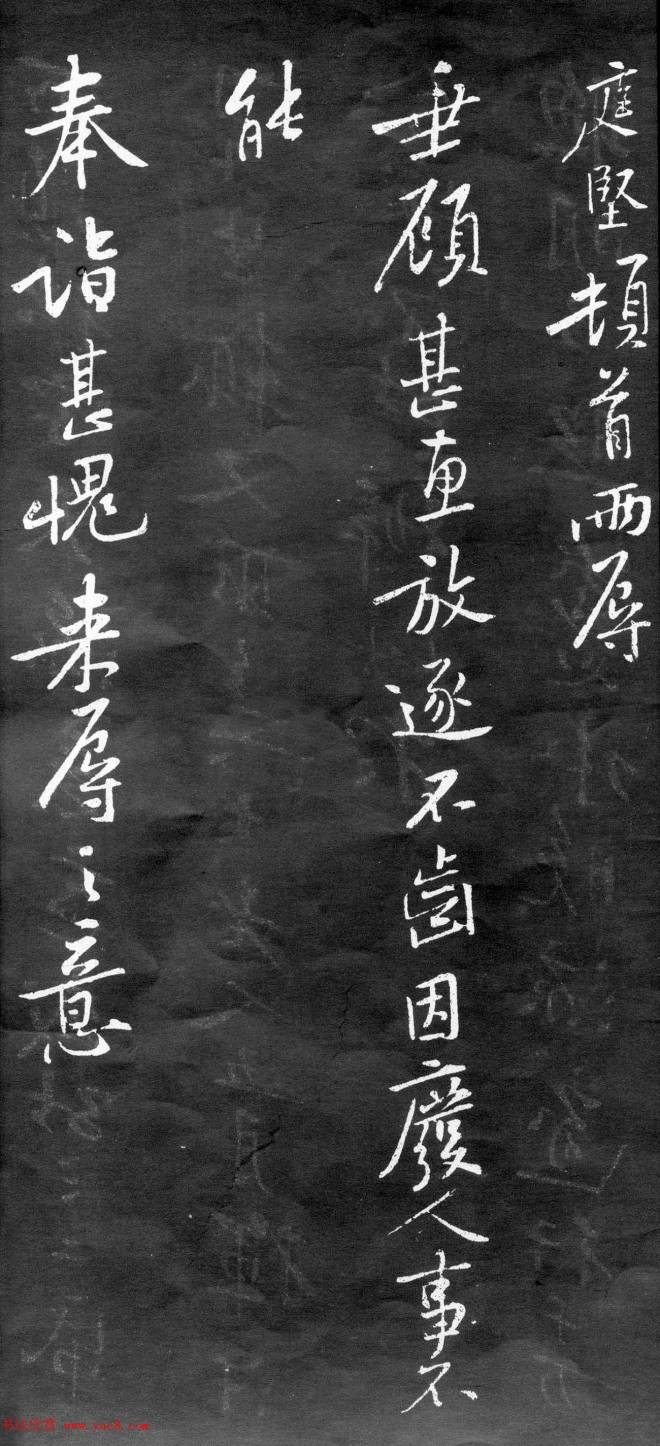 庭堅頓首兩辱
垂顧甚惠放逐不齒因廢人事不
能
奉詣甚愧来辱之意